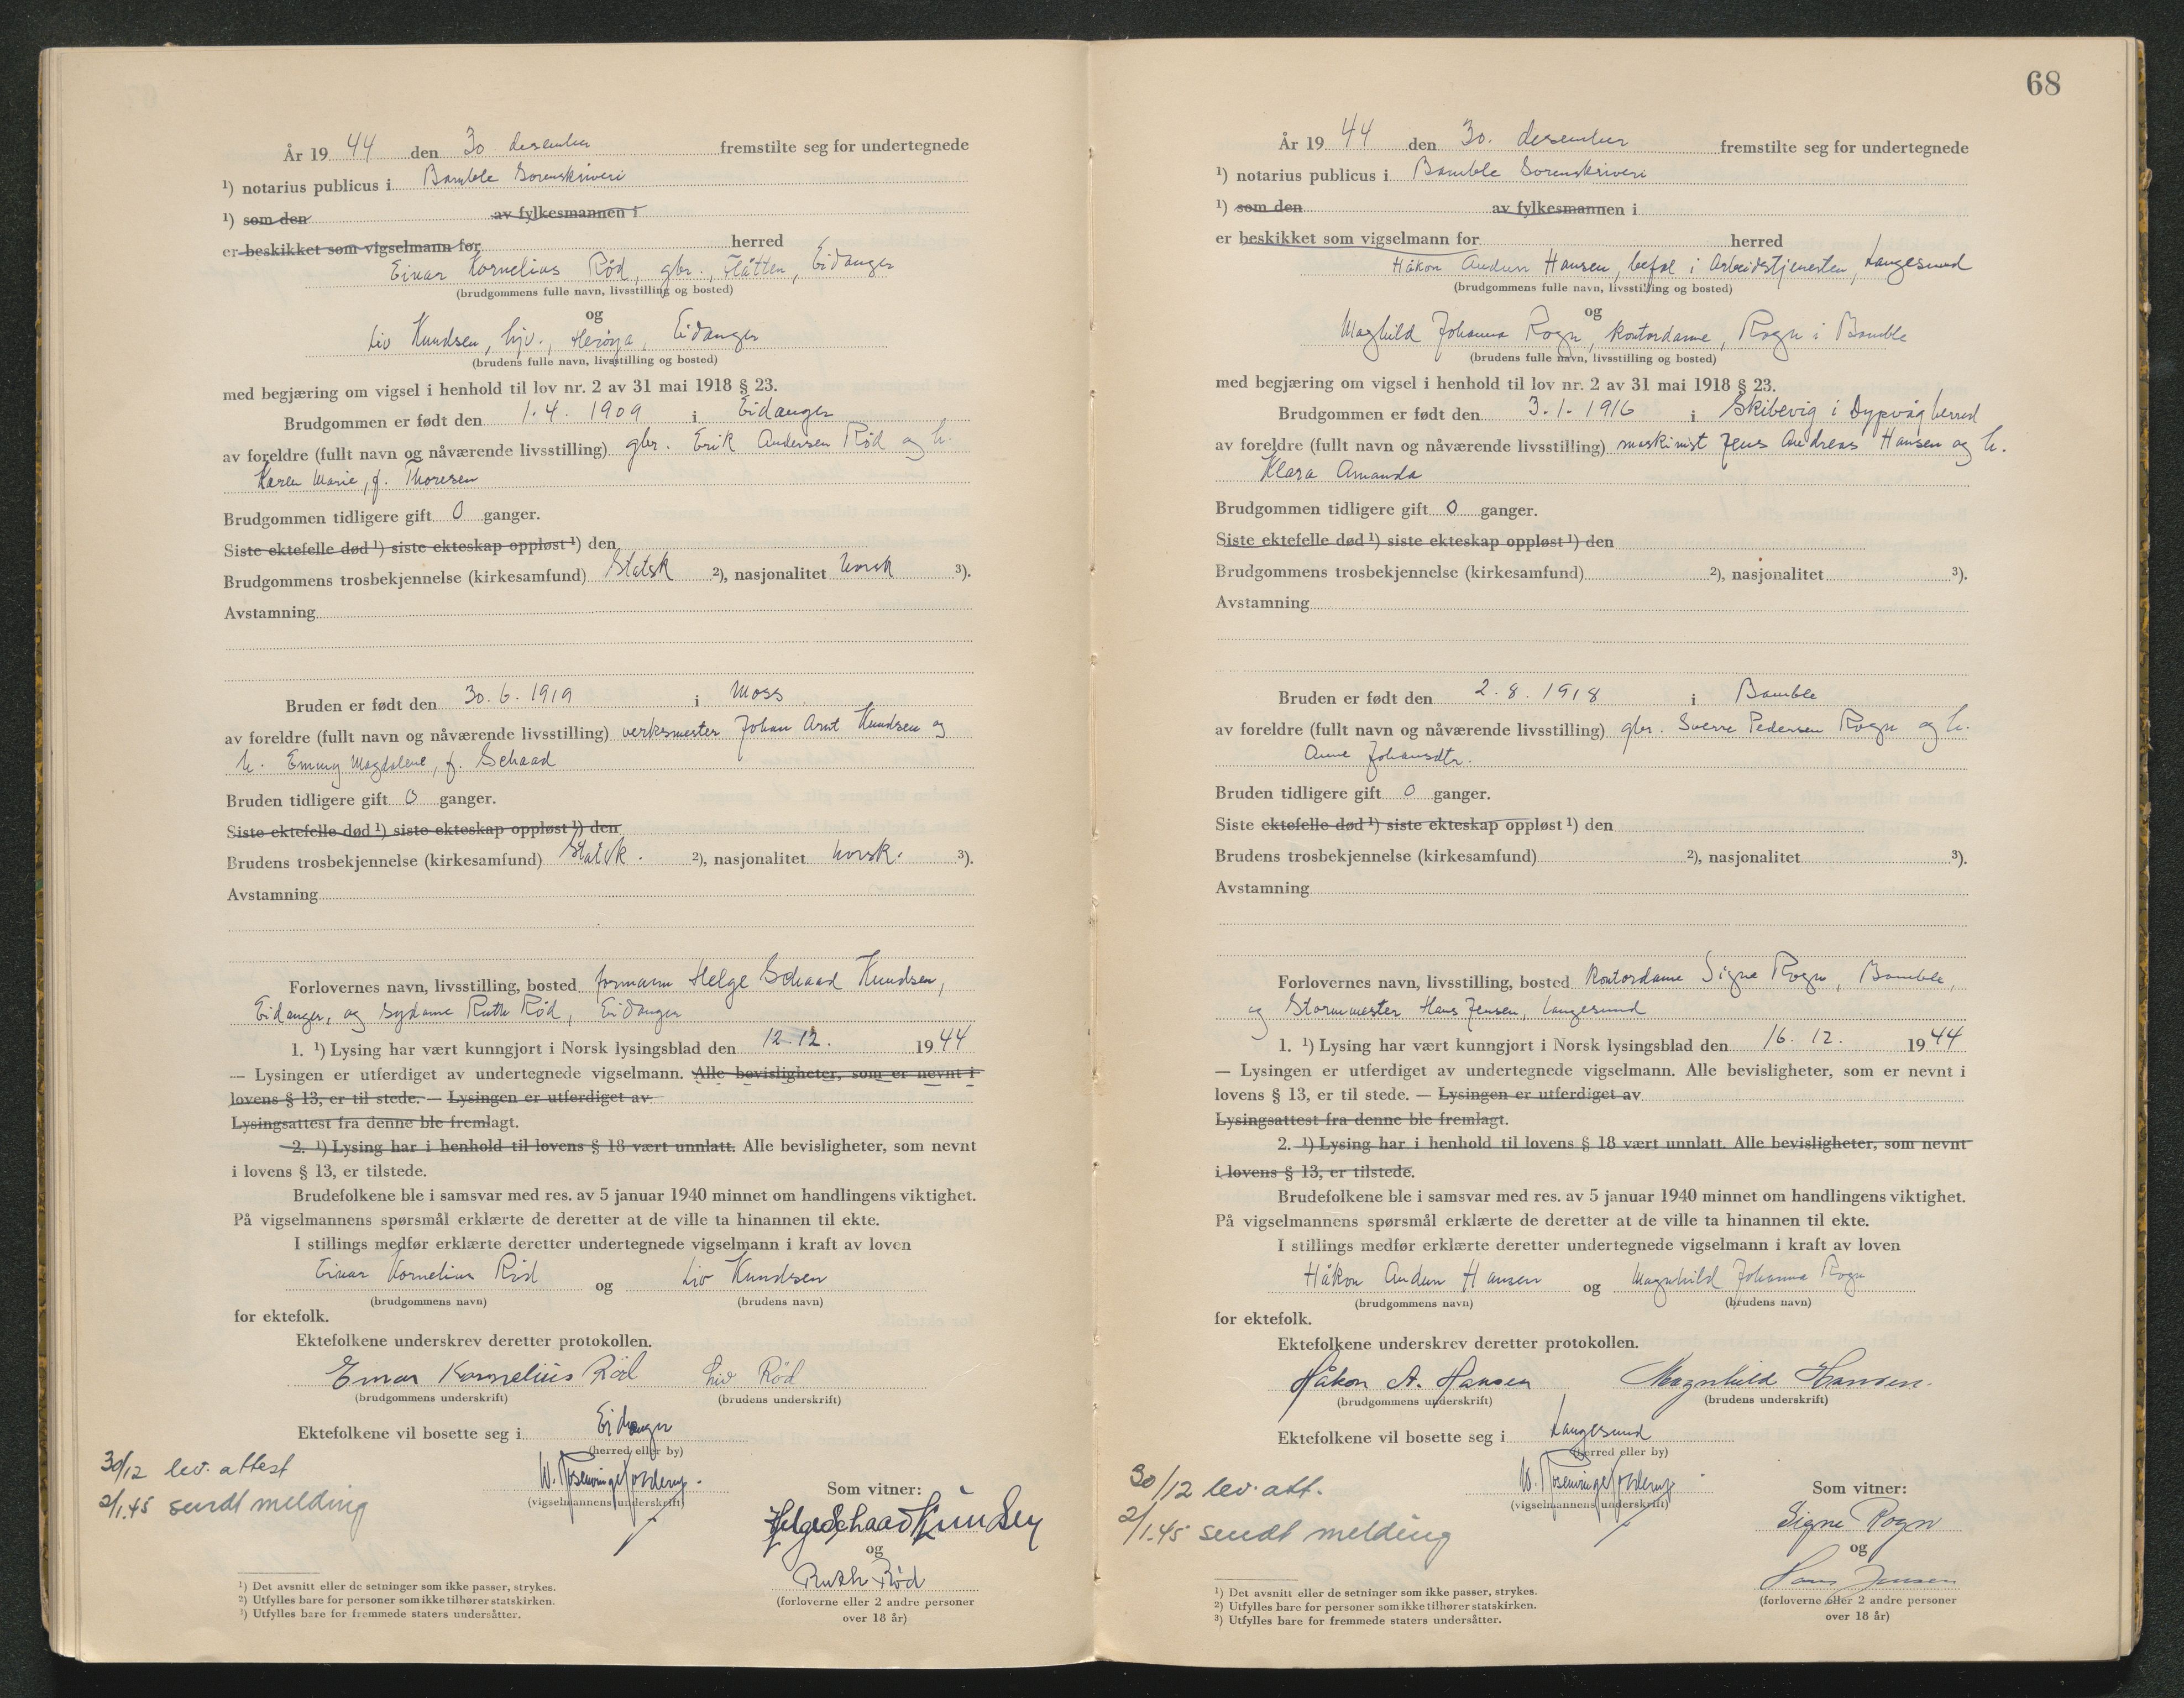 År 19 44 den 30 desember fremstilte seg for undertegnede
¹) notarius publicus i Bamble Sorenskriveri
¹) som den av fylkesmannen i
er beskikket som vigselmann for herred
Einar Kornelius Rød, gbr., Flåtten, Eidanger
(brudgommens fulle navn, livsstilling og bosted)
og
Liv Knudsen, hjv., Herøya, Eidanger
(brudens fulle navn, livsstilling og bosted)
med begjæring om vigsel i henhold til lov nr. 2 av 31 mai 1918 § 23.
Brudgommen er født den 1.4. 1909 i Eidanger
av foreldre (fullt navn og nåværende livsstilling) gbr. Erik Andersen Rød og h.
Karen Marie, f. Thoresen
Brudgommen tidligere gift 0 ganger.
Siste ektefelle død ¹) siste ekteskap oppløst ¹) den
Brudgommens trosbekjennelse (kirkesamfund) Statsk ²), nasjonalitet norsk ³).
Avstamning
Bruden er født den 30.6.1919 i Moss
av foreldre (fullt navn og nåværende livsstilling) verksmester Johan Arnt Knudsen og
h. Emmy Magdalene, f. Schaad
Bruden tidligere gift 0 ganger.
Siste ektefelle død ¹) siste ekteskap oppløst ¹) den
Brudens trosbekjennelse (kirkesamfund) Statsk. ²), nasjonalitet norsk. ³).
Avstamning
Forlovernes navn, livsstilling, bosted formann Helge Schaad Knudsen,
Eidanger, og sydame Ruth Rød, Eidanger
1. ¹) Lysing har vært kunngjort i Norsk lysingsblad den 12.12. 19 44
— Lysingen er utferdiget av undertegnede vigselmann. Alle bevisligheter, som er nevnt i
lovens § 13, er til stede. — Lysingen er utferdiget av
Lysingsattest fra denne ble fremlagt.
2. ¹) Lysing har i henhold til lovens § 18 vært unnlatt. Alle bevisligheter, som nevnt
i lovens § 13, er tilstede.
Brudefolkene ble i samsvar med res. av 5 januar 1940 minnet om handlingens viktighet.
På vigselmannens spørsmål erklærte de deretter at de ville ta hinannen til ekte.
I stillings medfør erklærte deretter undertegnede vigselmann i kraft av loven
Einar Kornelius Rød og Liv Knudsen
(brudgommens navn) (brudens navn)
for ektefolk.
Ektefolkene underskrev deretter protokollen.
Einar Kornelius Rød Liv Rød
(brudgommens underskrift) (brudens underskrift)
Ektefolkene vil bosette seg i Eidanger
(herred eller by)
30/12 lev. attest
2/1.45 sendt melding
W.
(vigselmannens underskrift)
Som vitner:
Helge Schaad Knudsen
og
Ruth Rød
(forloverne eller 2 andre personer
over 18 år)
¹) Det avsnitt eller de setninger som ikke passer, strykes.
²) Utfylles bare for personer som ikke tilhører statskirken.
³) Utfylles bare for fremmede staters undersåtter.
68
År 19 44 den 30. desember fremstilte seg for undertegnede
¹) notarius publicus i Bamble Sorenskriveri
¹) som den av fylkesmannen i
er beskikket som vigselmann for herred
Håkon Audun Hansen, befal i Arbeidstjenesten, Langesund
(brudgommens fulle navn, livsstilling og bosted)
og
Magnhild Johanna Rogn, kontordame, Rogn i Bamble
(brudens fulle navn, livsstilling og bosted)
med begjæring om vigsel i henhold til lov nr. 2 av 31 mai 1918 § 23.
Brudgommen er født den 3.1.1916 i Skibevig i Dypvåg herred
av foreldre (fullt navn og nåværende livsstilling) maskinist Jens Andreas Hansen og h.
Klara Amanda
Brudgommen tidligere gift 0 ganger.
Siste ektefelle død ¹) siste ekteskap oppløst ¹) den
Brudgommens trosbekjennelse (kirkesamfund) ²), nasjonalitet ³).
Avstamning
Bruden er født den 2.8.1918 i Bamble
av foreldre (fullt navn og nåværende livsstilling) gbr. Sverre Pedersen Rogn og h.
Anne Johansdtr.
Bruden tidligere gift 0 ganger.
Siste ektefelle død ¹) siste ekteskap oppløst ¹) den
Brudens trosbekjennelse (kirkesamfund) ²), nasjonalitet ³).
Avstamning
Forlovernes navn, livsstilling, bosted kontordame Signe Rogn, Bamble,
og Stormmester Hans Jensen, Langesund
1. ¹) Lysing har vært kunngjort i Norsk lysingsblad den 16. 12. 19 44
— Lysingen er utferdiget av undertegnede vigselmann. Alle bevisligheter, som er nevnt i
lovens § 13, er til stede. — Lysingen er utferdiget av
Lysingsattest fra denne ble fremlagt.
2. ¹) Lysing har i henhold til lovens § 18 vært unnlatt. Alle bevisligheter, som nevnt
i lovens § 13, er tilstede.
Brudefolkene ble i samsvar med res. av 5 januar 1940 minnet om handlingens viktighet.
På vigselmannens spørsmål erklærte de deretter at de ville ta hinannen til ekte.
I stillings medfør erklærte deretter undertegnede vigselmann i kraft av loven
Håkon Audun Hansen og Magnhild Johanna Rogn
(brudgommens navn) (brudens navn)
for ektefolk.
Ektefolkene underskrev deretter protokollen.
Håkon A. Hansen Magnhild Hansen.
(brudgommens underskrift) (brudens underskrift)
Ektefolkene vil bosette seg i Langesund
(herred eller by)
30/12 lev. att.
2/1.45 sendt melding
W.
(vigselmannens underskrift)
Som vitner:
Signe Rogn
og
Hans Jensen
(forloverne eller 2 andre personer
over 18 år)
¹) Det avsnitt eller de setninger som ikke passer, strykes.
²) Utfylles bare for personer som ikke tilhører statskirken.
³) Utfylles bare for fremmede staters undersåtter.